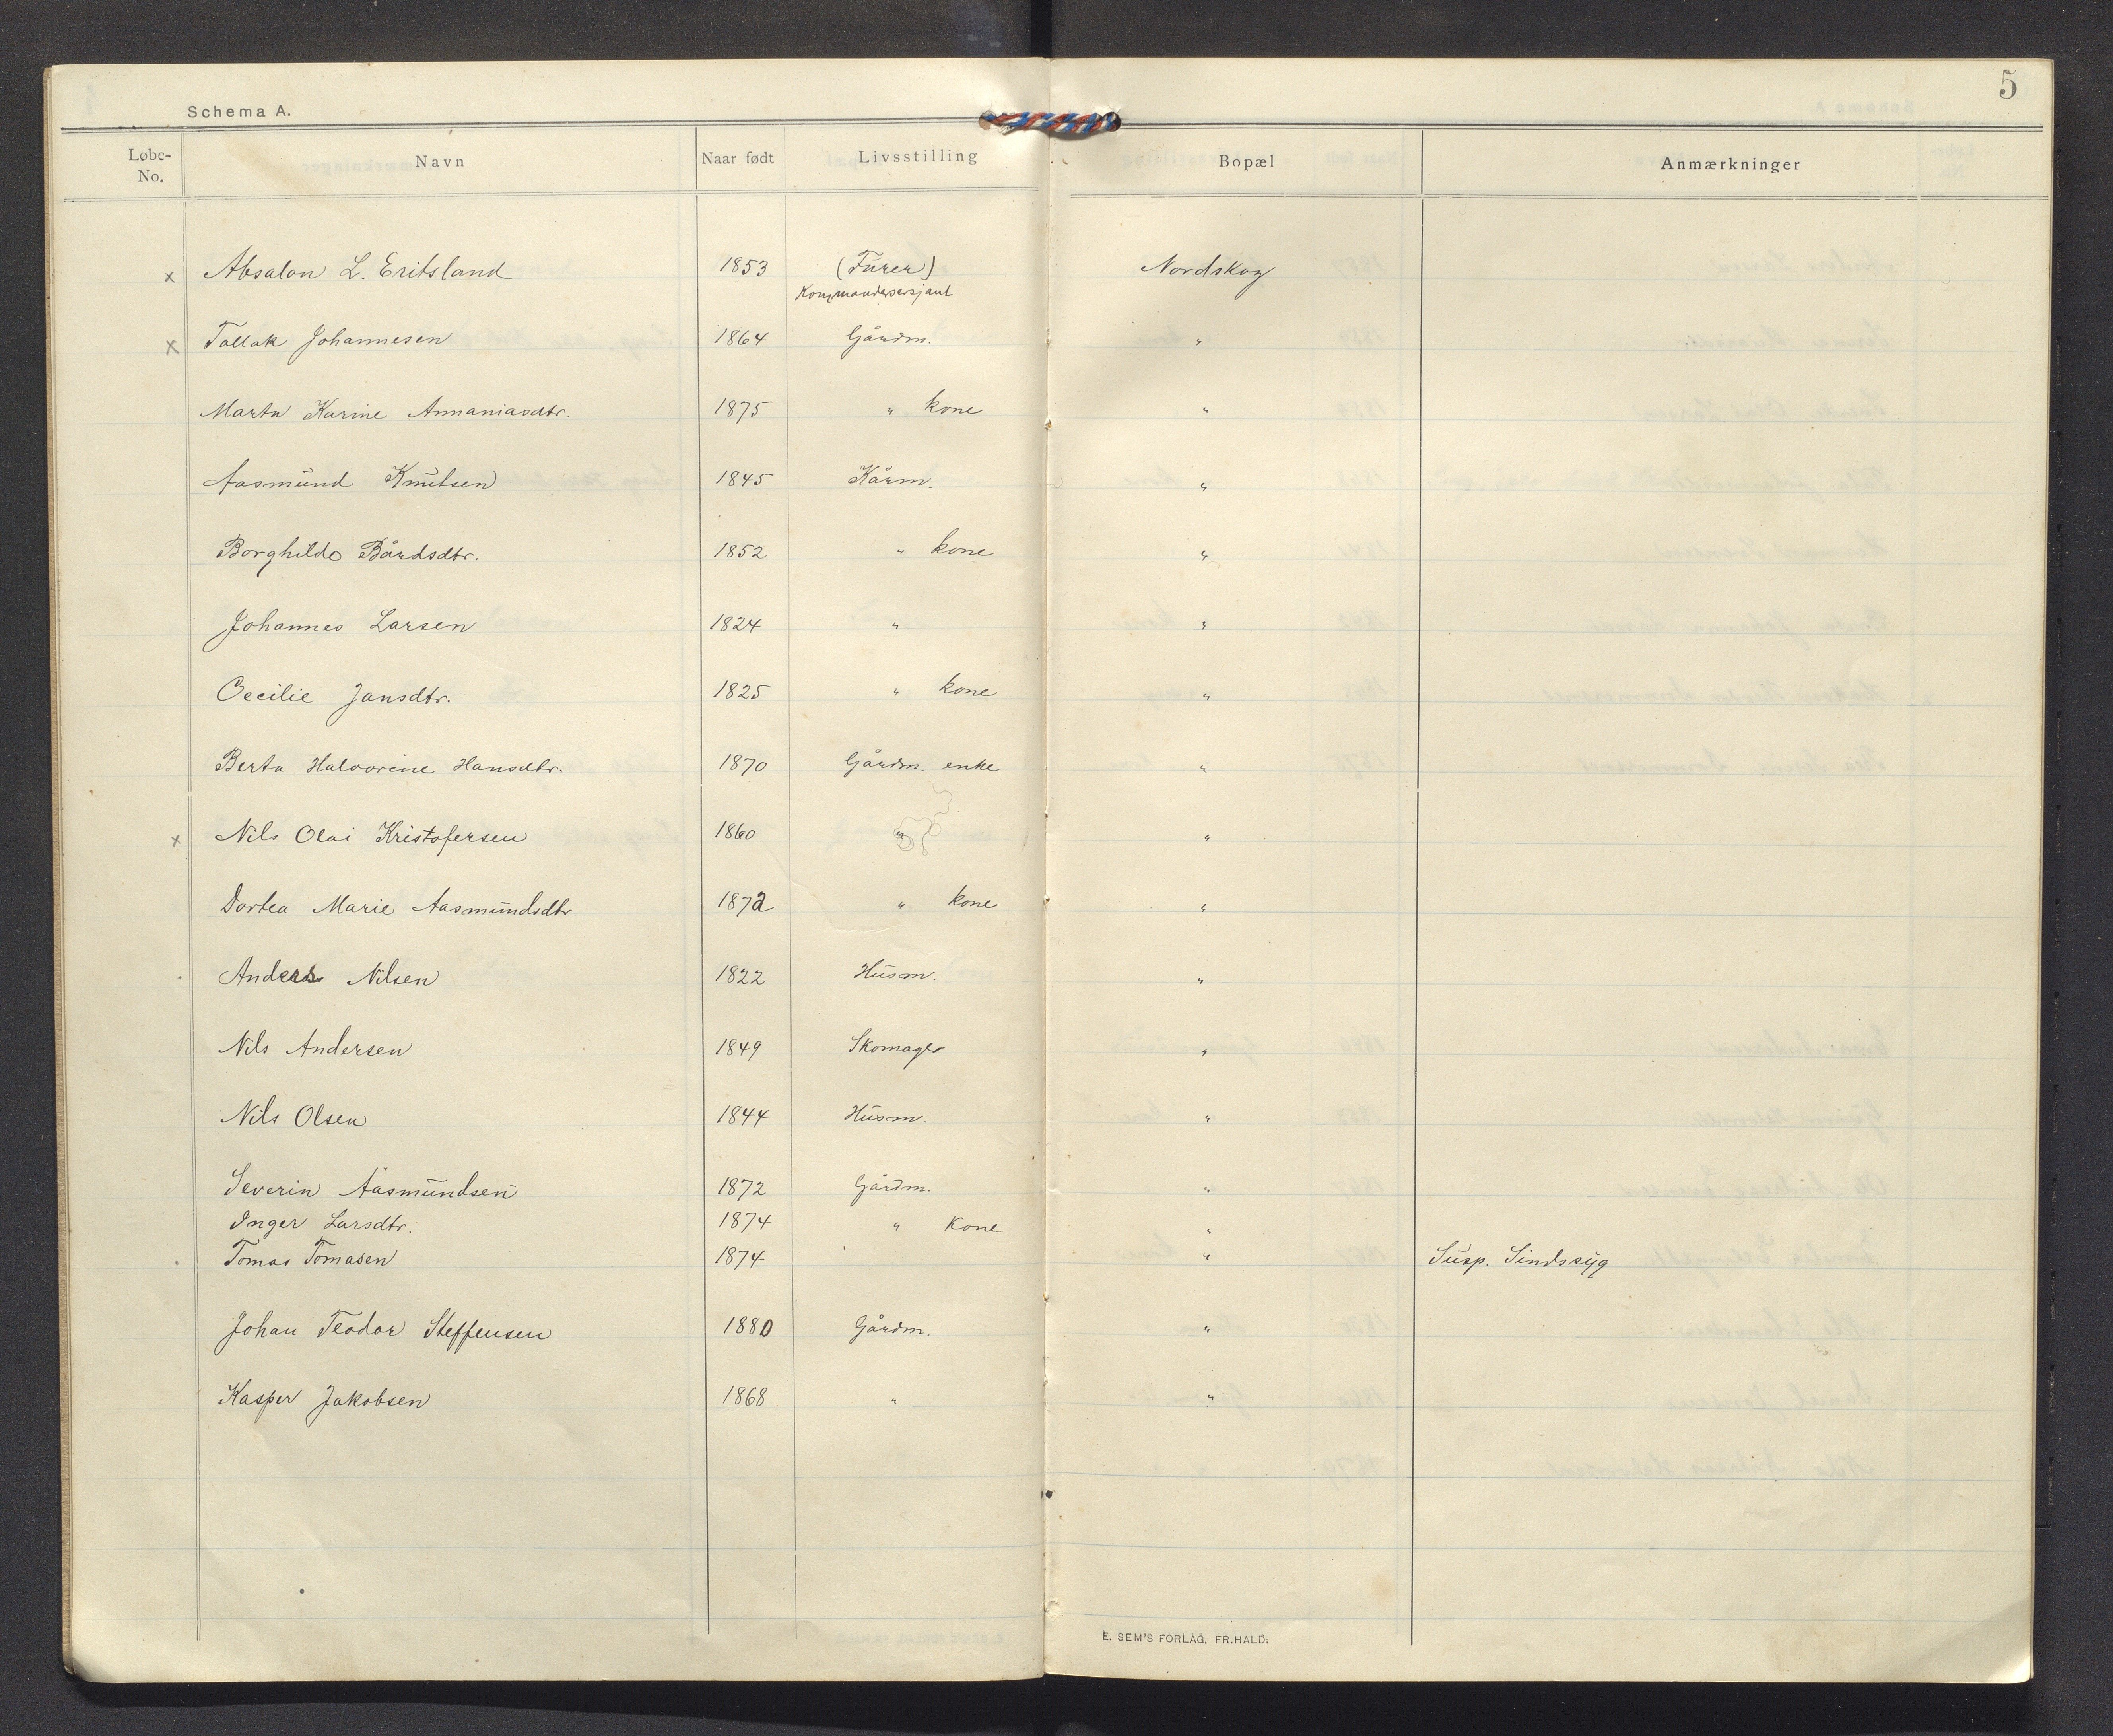 5
Schema A.
Løbe-No. Navn Naar født Livsstilling Bopæl Anmærkninger
x Absalon L. Eritsland 1853 (Fürer) Nordskog
Kommandersersjant
x Tallak Johannesen 1864 Gårdm. "
Marta Karine Annaniasdtr. 1875 " kone "
Aasmund Knutsen 1845 Kårm. "
Borghild Bårdsdtr. 1852 " kone "
Johannes Larsen 1824 " "
Cecilie Jansdtr. 1825 " kone "
Berta Halvorine Hansdtr. 1870 Gårdm. enke "
x Nils Olai Kristofersen 1860 " "
Dortea Marie Aasmundsdtr. 1872 " kone "
Anders Nilsen 1822 Husm. "
Nils Andersen 1849 Skomager "
Nils Olsen 1844 Husm. "
Severin Aasmundsen 1872 Gårdm. "
Inger Larsdtr. 1874 " Kone "
Tomas Tomasen 1874 " Susp. Sindssyg
Johan Teodor Steffensen 1880 Gårdm. "
Kasper Jakobsen 1868 " "
E. SEM'S FORLAG, FR.HALD.